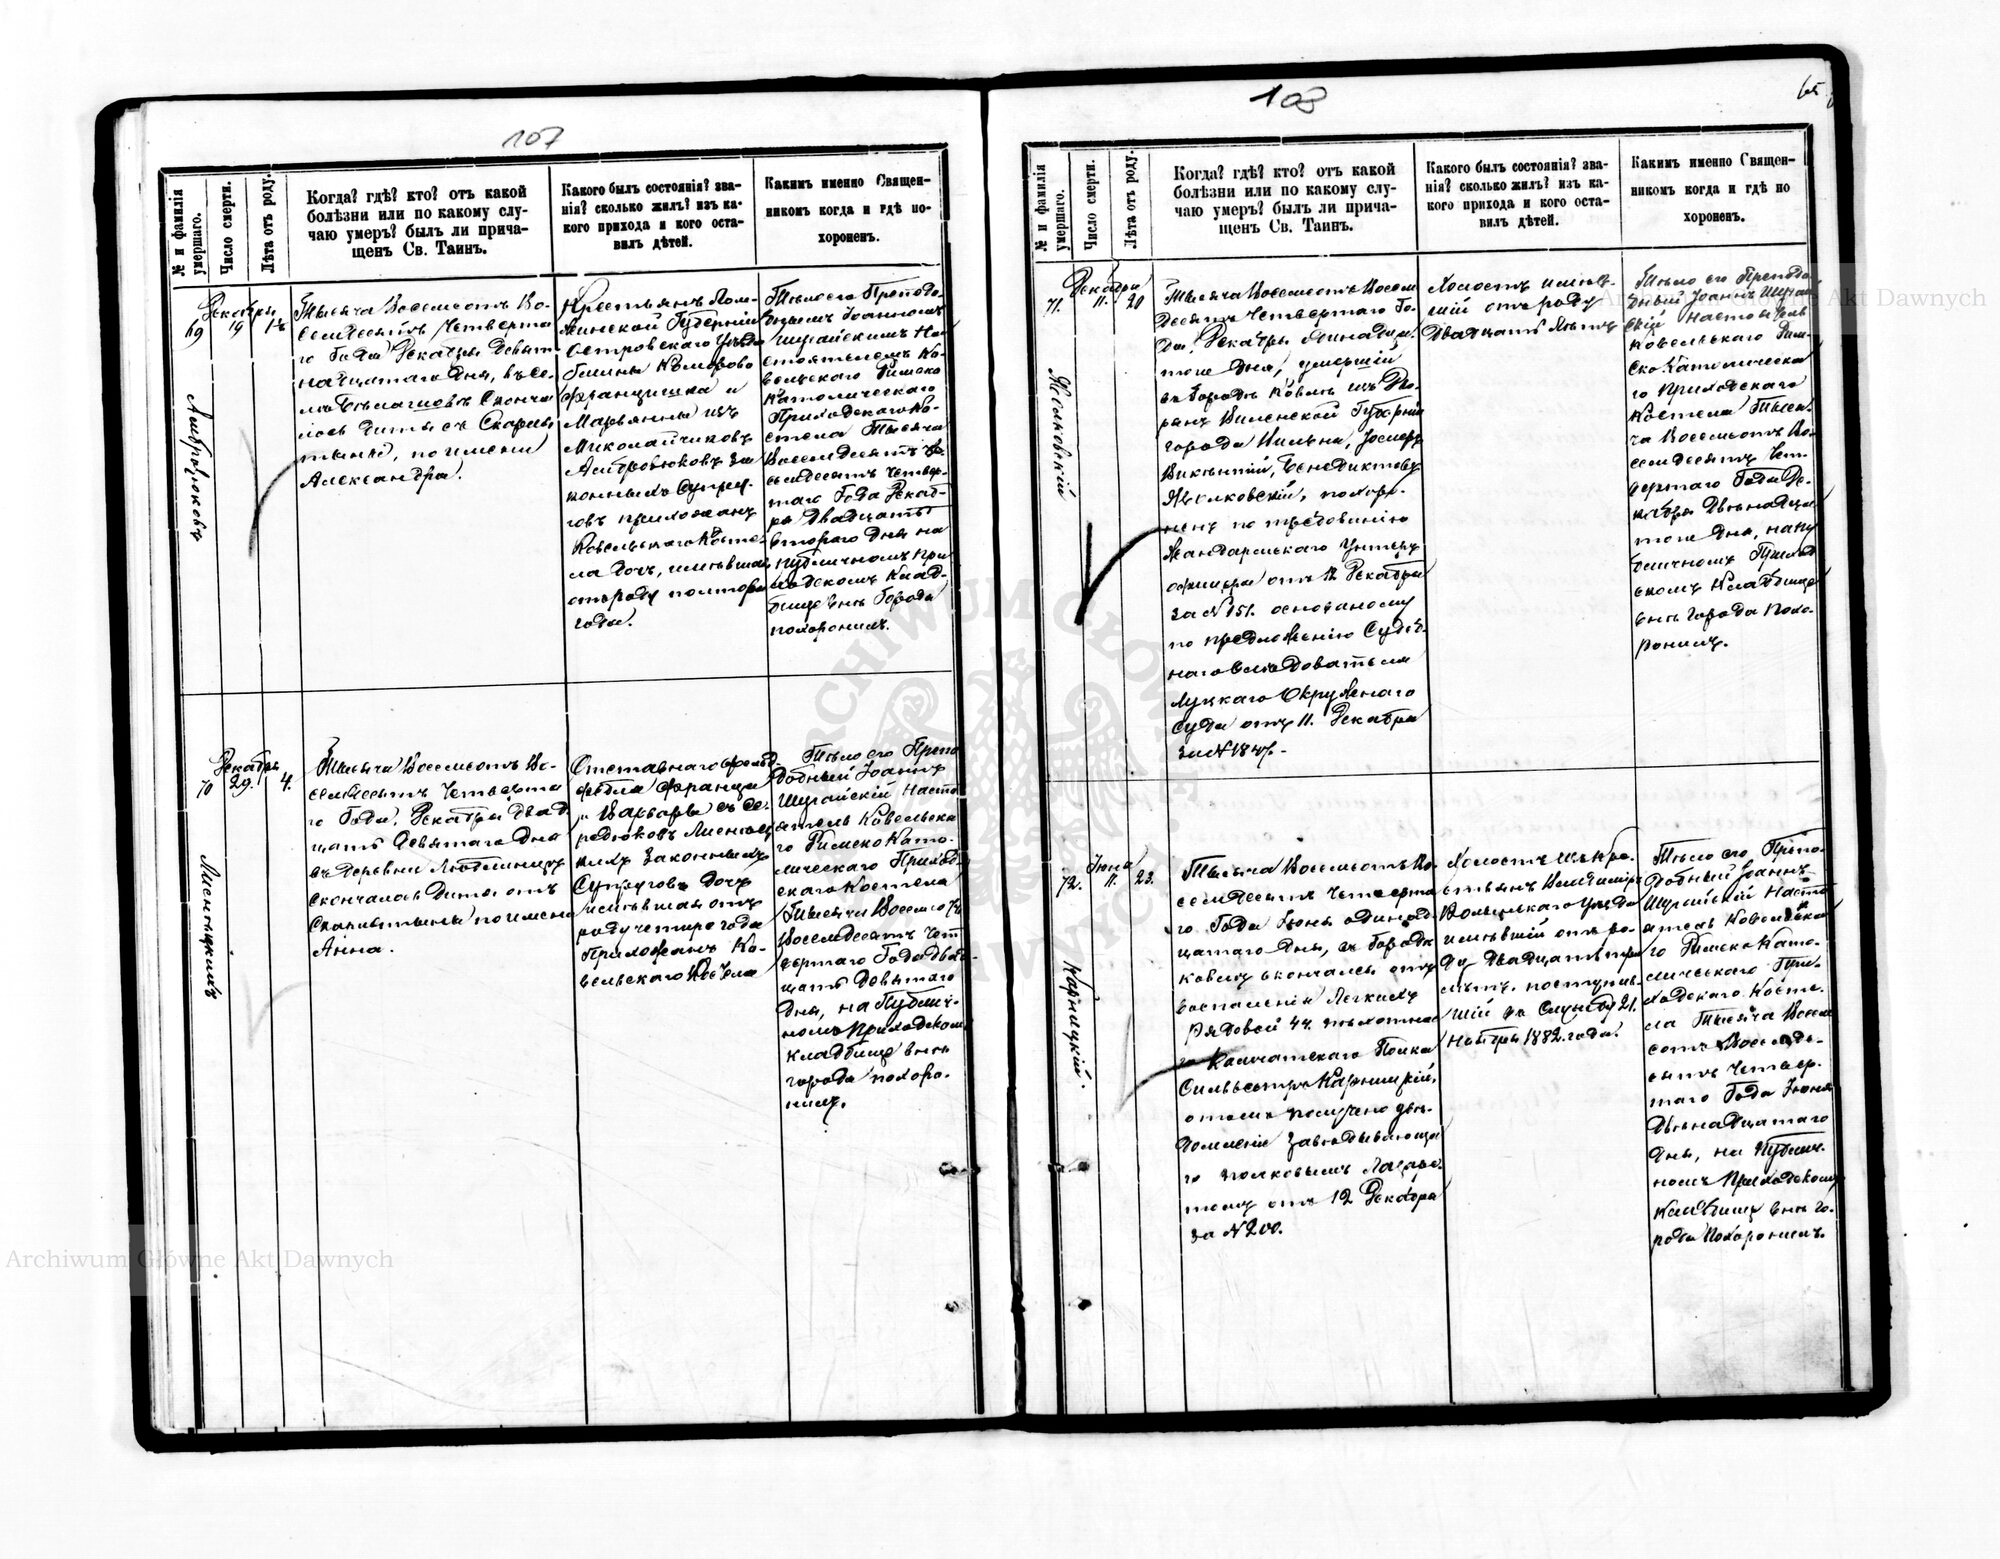 107
№ и фамилія умершаго.
Число смерти.
Лѣта отъ роду.
Когда? гдѣ? кто? отъ какой
болѣзни или по какому слу-
чаю умеръ? былъ ли прича-
щенъ Св. Таинъ.
Какого былъ состоянія? зва-
нія? сколько жилъ? изъ ка-
кого прихода и кого оста-
вилъ дѣтей.
Какимъ именно Священ-
никомъ когда и гдѣ по-
хороненъ.
69
Декабря
19
Амброзюковъ
Тысяча Восемсотъ Во-
семдесятъ Четверта
го Года Декабря Девят
надцатаго Дня, въ се-
лѣ сконча
лось Дитя съ Скарла
тыны, по имени
Александра.
Крестьянъ Лом-
жинской Губерніи
Островскаго Уѣзда
Гмины Коморово
Францишка и
Марьянны изъ
Миколайчиковъ
Амброзюковъ за
конныхъ Супру-
говъ прихожанъ
Ковельскаго Косте-
ла дочь, имѣвшая
отъ роду полтора
года.
Тѣло его Преподо-
бнымъ Іоанномъ
Шугайскимъ На-
стоятелемъ Ко-
вельскаго Римско
Католическаго
Приходскаго Ко-
стела Тысяча
Восемдесятъ Во-
семдесятъ Четвер-
таго Года Декаб-
ря Двадцать
втораго Дня на
публичномъ При
ходскомъ Клад-
бище внѣ Города
похоронилъ.
70
Декабря
29.
4.
Лиснѣцкихъ
Тысяча Восемсотъ Во-
семдесятъ Четверта
го Года, Декабря Двад
цать Девятаго Дня
въ Деревни Люблинецъ
скончалось Дитя отъ
Скарлятыны по имени
Анна.
Отставнаго фельд-
фебля Франца
и Варвары съ Фе-
Лиснѣц
кихъ Законныхъ
Супруговъ Дочь
имѣвшая отъ
роду четыре года
Прихожанъ Ко-
вельскаго Костела
Тѣло его Препо
добный Іоаннъ
Шугайскій Насто
ятель Ковельска
го Римско Като-
лическаго Приход-
скаго Костела
Тысяча Восемсотъ
Восемдесятъ Чет
вертаго Года Двад-
цать Девятаго
Дня, на Публич-
номъ Приходскомъ
кладбище внѣ
города похоро-
нилъ.
108
65
№ и фамилія умершаго.
Число смерти.
Лѣта отъ роду.
Когда? гдѣ? кто? отъ какой
болѣзни или по какому слу-
чаю умеръ? былъ ли прича-
щенъ Св. Таинъ.
Какого былъ состоянія? зва-
нія? сколько жилъ? изъ ка-
кого прихода и кого оста-
вилъ дѣтей.
Какимъ именно Священ-
никомъ когда и гдѣ по
хороненъ.
71.
Декабря
11.
20
Тысяча Восемсотъ Восем
Десятъ Четвертаго Го-
да, Декабря Одинадца-
таго Дня, умершій
въ Городѣ Ковлѣ изъ Дво-
рянъ Виленской Губерніи
города Вильна,
Викентій, Бенедиктовъ
похоро-
ненъ по требованію
Жандармскаго Унтеръ
офицера отъ 12 Декабря
за № 151. основаному
по предложенію Судеб-
наго Слѣдователя
Луцкаго Окружнаго
Суда отъ 11. Декабря
за № 1847.
Холостъ имѣв-
шій отъ роду
Двадцать Лѣтъ
Тѣло его Преподо-
бный Іоаннъ Шугай
скій Настоятель
Ковельскаго Рим-
ско Католическа
го Приходскаго
Костела Тыся-
ча Восемсотъ Во-
семдесятъ Чет-
вертаго Года Де-
кабря Двѣнадца-
таго Дня, на Пу
бличномъ Приход
скомъ Кладбище
внѣ города похо-
ронилъ.
72.
Іюня
11.
23.
Карницкій.
Тысяча Восемсотъ Во
семдесятъ Четверта
го Года Іюня одинад
цатаго Дня, въ Городѣ
Ковлѣ скончался отъ
воспаленія Легкихъ
Рядовой 44. пѣхотна
го Камчатскаго Полка
Сильвестръ Карницкій,
о томъ получено увѣ-
домленіе Завѣдывающа
го полковымъ Лазаре
томъ отъ 12 Декабря
за № 200.
Холостъ изъ Кре-
стьянъ Владиміръ
Волынскаго Уѣзда
имѣвшій отъ ро-
ду Двадцать три
лѣтъ, поступив-
шій въ Службу 21.
Ноября 1882. года.
Тѣло его Препо-
добный Іоаннъ
Шугайскій Насто
ятель Ковельска
го Римско Като-
лическаго При-
ходскаго Косте-
ла Тысяча Восем
сотъ Восемьде-
сятъ Четвер-
таго Года Іюня
Двѣнадцатаго
Дня, на Публич-
номъ Приходскомъ
Кладбище внѣ го-
рода Похоронилъ.
Archiwum Główne Akt Dawnych
Archiwum Główne Akt Dawnych